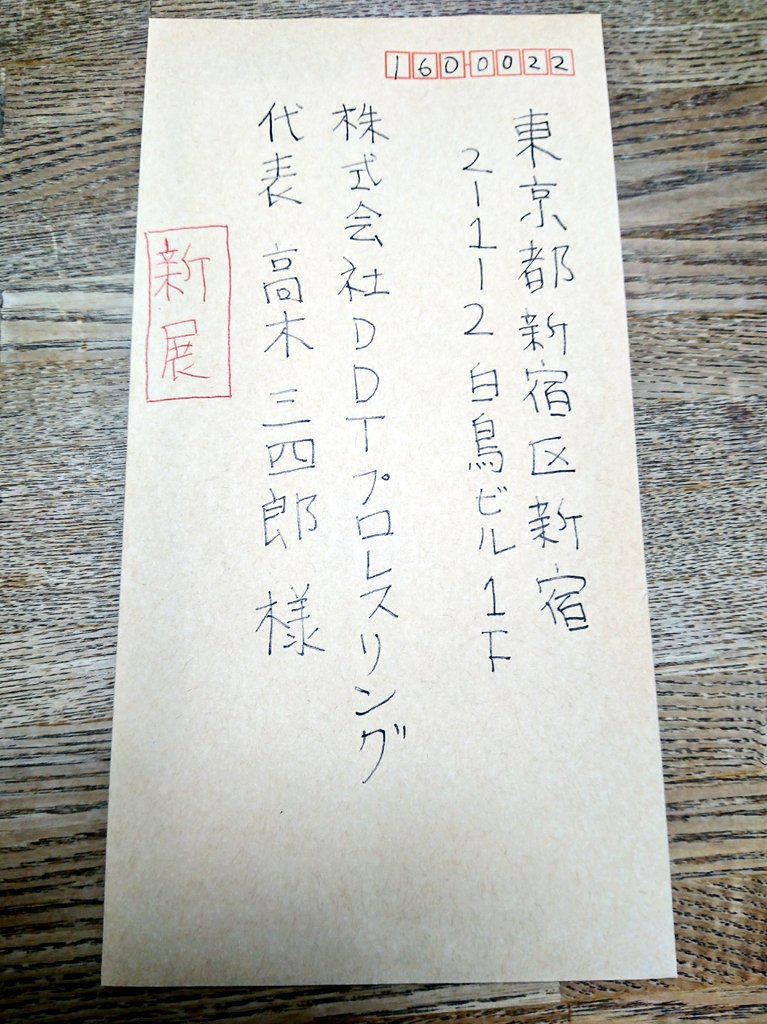 1600022
東京都新宿区新宿
2-11-2 白鳥ビル1F
株式会社DDTプロレスリング
代表 高木 三四郎 様
新展